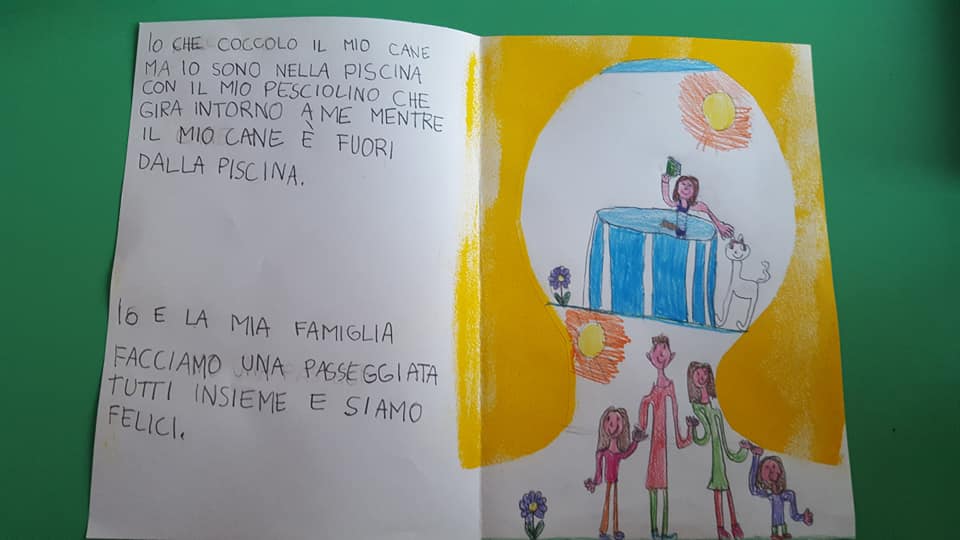 IO CHE COCCOLO IL MIO CANE
MA IO SONO NELLA PISCINA
CON IL MIO PESCIOLINO CHE
GIRA INTORNO A ME MENTRE
IL MIO CANE È FUORI
DALLA PISCINA.
IO E LA MIA FAMIGLIA
FACCIAMO UNA PASSEGGIATA
TUTTI INSIEME E SIAMO
FELICI.